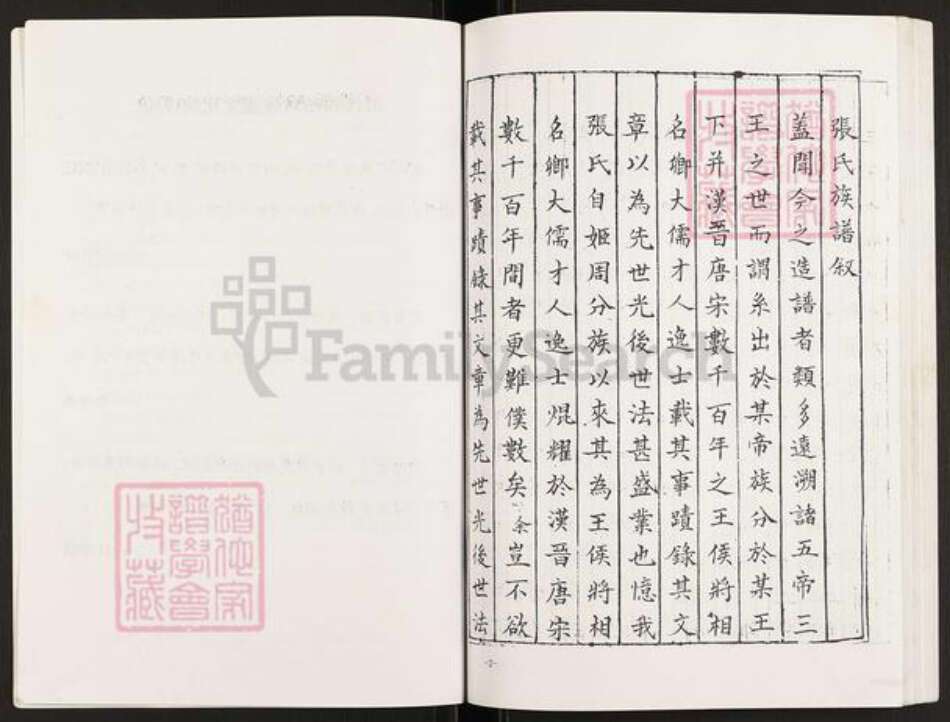 張氏族譜叙
蓋聞今之造譜者類多遠溯諸五帝三
王之世而謂系出於某帝族分於某王
下并漢晉唐宋數千百年之王侯將相
名卿大儒才人逸士載其事蹟錄其文
章以為先世光後世法甚盛業也憶我
張氏自姬周分族以來其為王侯將相
名鄉大儒才人逸士焜耀於漢晉唐宋
數千百年間者更難僕數矣余豈不欲
載其事蹟錄其文章為先世光後世法
FamilySearch
譜學會
藏